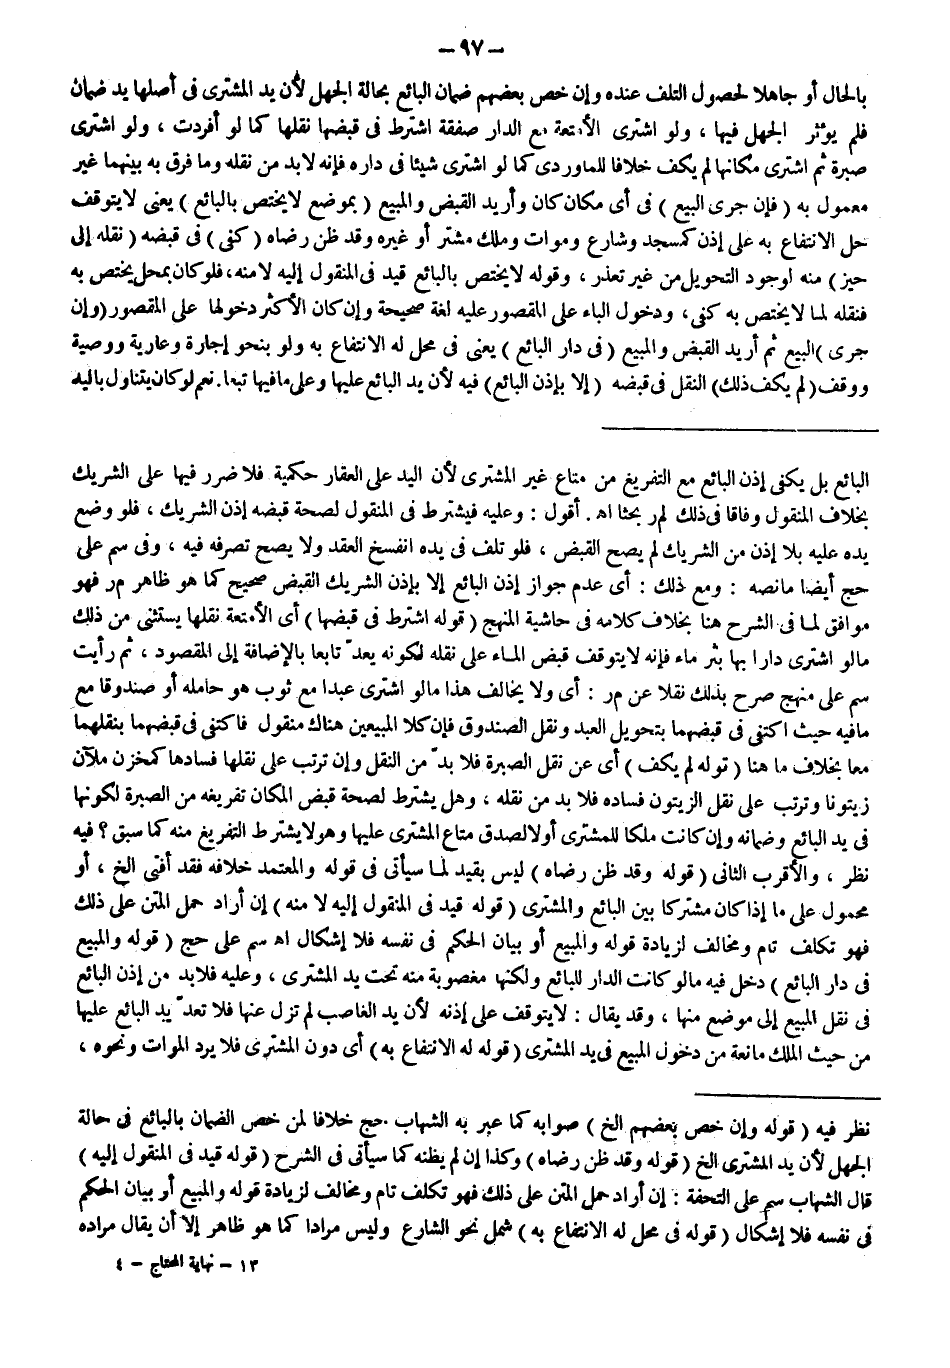 - ٩٧ -
بالحال أو جاهلا لحصول التلف عنده وإن خص بعضهم ضمان البائع بحالة الجهل لأن يد المشترى فى أصلها يد ضمان
فلم يؤثر الجهل فيها ، ولو اشترى الأمتعة مع الدار صفقة اشترط فى قبضها نقلها كما لو أفردت ، ولو اشترى
صبرة ثم اشترى مكانها لم يكف خلافا للماوردى كما لو اشترى شيئا فى داره فإنه لابد من نقله وما فرق به بينهما غير
معمول به ( فإن جرى البيع ) فى أى مكان كان وأريد القبض والمبيع ( بموضع لايختص بالبائع ) يعنى لايتوقف
حل الانتفاع به على إذن كمسجد وشارع وموات وملك مشتر أو غيره وقد ظن رضاه ( كفى ) فى قبضه ( نقله إلى
حيز ) منه لوجود التحويل من غير تعذر ، وقوله لايختص بالبائع قيد فى المنقول إليه لامنه، فلوكان بمحل يختص به
فنقله لما لايختص به كفى، ودخول الباء على المقصور عليه لغة صحيحة وإن كان الأكثر دخولها على المقصور (وإن
جرى )البيع ثم أريد القبض والمبيع ( فى دار البائع ) يعنى فى محل له الانتفاع به ولو بنحو إجارة وعارية ووصية
ووقف( لم يكف ذلك) النقل فى قبضه ( إلا بإذن البائع) فيه لأن يد البائع عليها وعلى مافيها تبعا. نعم لو كان يتناول باليد
البائع بل يكفى إذن البائع مع التفريغ من متاع غير المشترى لأن اليد على العقار حكمية فلا ضرر فيها على الشريك
بخلاف المنقول وفاقا فى ذلك لمر بحثا اه . أقول : وعليه فيشترط فى المنقول لصحة قبضه إذن الشريك ، فلو وضع
يده عليه بلا إذن من الشريك لم يصح القبض ، فلو تلف فى يده انفسخ العقد ولا يصح تصرفه فيه ، وفى سم على
حج أيضا مانصه : ومع ذلك : أى عدم جواز إذن البائع إلا بإذن الشريك القبض صحيح كما هو ظاهر مر فهو
موافق لما فى الشرح هنا بخلاف كلامه فى حاشية المنهج ( قوله اشترط فى قبضها ) أى الأمتعة نقلها يستثنى من ذلك
مالو اشترى دارا بها بئر ماء فإنه لايتوقف قبض الماء على نقله لكونه يعدّ تابعا بالإضافة إلى المقصود ، ثم رأيت
سم على منهج صرح بذلك نقلا عن مر : أى ولا يخالف هذا مالو اشترى عبدا مع ثوب هو حامله أو صندوقا مع
مافيه حيث اكتفى فى قبضهما بتحويل العبد ونقل الصندوق فإن كلا المبيعين هناك منقول فاكتفى فى قبضهما بنقلهما
معا بخلاف ما هنا ( قوله لم يكف ) أى عن نقل الصبرة فلا بدّ من النقل وإن ترتب على نقلها فسادها كمخزن ملآن
زيتونا وترتب على نقل الزيتون فساده فلا بد من نقله ، وهل يشترط لصحة قبض المكان تفريغه من الصبرة لكونها
فى يد البائع وضمانه وإن كانت ملكا للمشترى أولا لصدق متاع المشترى عليها وهو لايشترط التفريغ منه كما سبق ؟ فيه
نظر ، والأقرب الثانى ( قوله وقد ظن رضاه ) ليس بقيد لما سيأتى فى قوله والمعتمد خلافه فقد أفتى الخ ، أو
محمول على ما إذا كان مشتركا بين البائع والمشترى ( قوله قيد فى المنقول إليه لا منه ) إن أراد حمل المتن على ذلك
فهو تكلف تام ومخالف لزيادة قوله والمبيع أو بيان الحكم فى نفسه فلا إشكال اه سم على حج ( قوله والمبيع
فى دار البائع ) دخل فيه مالو كانت الدار للبائع ولكنها مغصوبة منه تحت يد المشترى ، وعليه فلابد من إذن البائع
فى نقل المبيع إلى موضع منها ، وقد يقال : لايتوقف على إذنه لأن يد الغاصب لم تزل عنها فلا تعدّ يد البائع عليها
من حيث الملك مانعة من دخول المبيع فى يد المشترى ( قوله له الانتفاع به ) أى دون المشترى فلا يرد الموات ونحوه ،
نظر فيه ( قوله وإن خص بعضهم الخ ) صوابه كما عبر به الشهاب حج خلافا لمن خص الضمان بالبائع فى حالة
الجهل لأن يد المشترى الخ ( قوله وقد ظن رضاه ) وكذا إن لم يظنه كما سيأتى فى الشرح ( قوله قيد فى المنقول إليه )
قال الشهاب سم على التحفة : إن أراد حمل المتن على ذلك فهو تكلف تام ومخالف لزيادة قوله والمبيع أو بيان الحكم
فى نفسه فلا إشكال ( قوله فى محل له الانتفاع به ) شمل نحو الشارع وليس مرادا كما هو ظاهر إلا أن يقال مراده
١٣ - نهاية المحتاج - ٤